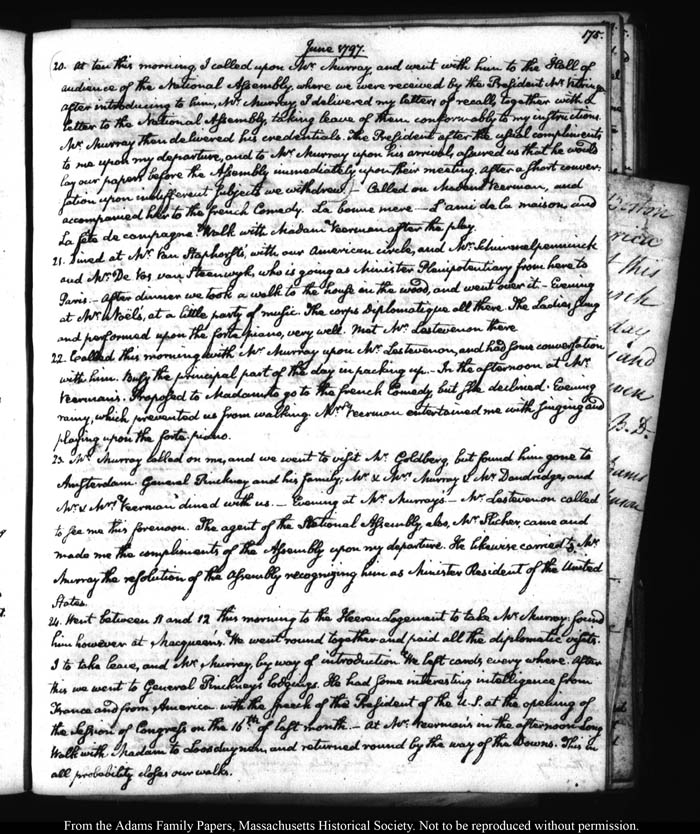 175.
June 1797.
20. At ten this morning, I called upon Mr. Murray and went with him to the Hall of
audience of the National Assembly, where we were received by the President Mr.
after introducing to him, Mr. Murray, I delivered my letters of recall, together with a
letter to the National Assembly taking leave of them conformably to my instructions.
Mr. Murray then delivered his credentials. The President after the usual compliments
to me upon my departure, and to Mr. Murray upon his arrival, assured us that he would
lay our papers before the Assembly immediately upon their meeting. After a short conver-
sation upon indifferent subjects we withdrew. — Called on Madam Veerman, and
accompanied her to the French Comedy. La bonne mere — L'ami de la maison, and
La fête de campagne. Walk with Madam Veerman after the play.
21. Dined at Mr. Van Staphorst's, with our American circle, and Mr. Schimmelpenninck
and Mr. De Vos van Steenwyk, who is going as Minister Plenipotentiary from here to
Paris. — After dinner we took a walk to the house in the wood, and went over it — Evening
at Mr. Noël's, at a little party of music. The corps Diplomatique all there. The Ladies sung
and performed upon the forte piano, very well. Met Mr. Lestevenon there.
22. Called this morning with Mr. Murray upon Mr. Lestevenon, and had some conversation
with him. Busy the principal part of the day in packing up. — In the afternoon at Mr.
Veerman's. Proposed to Madam to go to the French Comedy, but she declined. Evening
rainy, which prevented us from walking. Mrs. Veerman entertained me with singing and
playing upon the forte piano.
23. Mr. Murray called on me, and we went to visit Mr. Goldberg, but found him gone to
Amsterdam. General Pinckney and his family; Mr. & Mrs. Murray & Mr. Dandridge, and
Mr. & Mrs. Veerman dined with us. — Evening at Mr. Murray's — Mr. Lestevenon called
to see me this forenoon. The agent of the National Assembly, also, Mr. Slicher, came and
made me the compliments of the Assembly upon my departure. He likewise carried to Mr.
Murray the resolution of the Assembly recognizing him as Minister Resident of the United
States.
24. Went between 11 and 12 this morning to the Heeren Logement to take Mr. Murray: found
him however at Macqueen's. We went round together and paid all the diplomatic visits.
I to take leave, and Mr. Murray, by way of introduction. We left cards every where. After
this we went to General Pinckney's lodgings. He had some interesting intelligence from
France and from America with the speech of the President of the U.S. at the opening of
the Session of Congress on the 16th of last month. — At Mr. Veerman's in the afternoon. Long
Walk with Madam to Loosduynen, and returned round by the way of the Downs. This in
all probability closes our walks.
this
day
and
B. D.
From the Adams Family Papers, Massachusetts Historical Society. Not to be reproduced without permission.